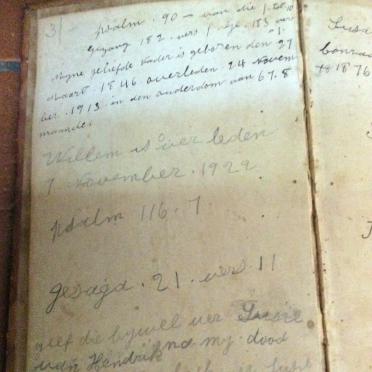 3 psalm . 90 — van die 1 tot 10
gezang 182 . vers 1 . ge . 183 vers 1
Myne geliefde vader is geboren den 27
Maart 1846 overleden 24 Novem
ber . 1913 . in den ouderdom van 67 . 8
maande .
Willem is over leden
7 November . 1922
psalm 116 . 7
gesagd . 21 . vers 11
geef die bywel ver Susie
van Hendrik na my dood
Susa
1876